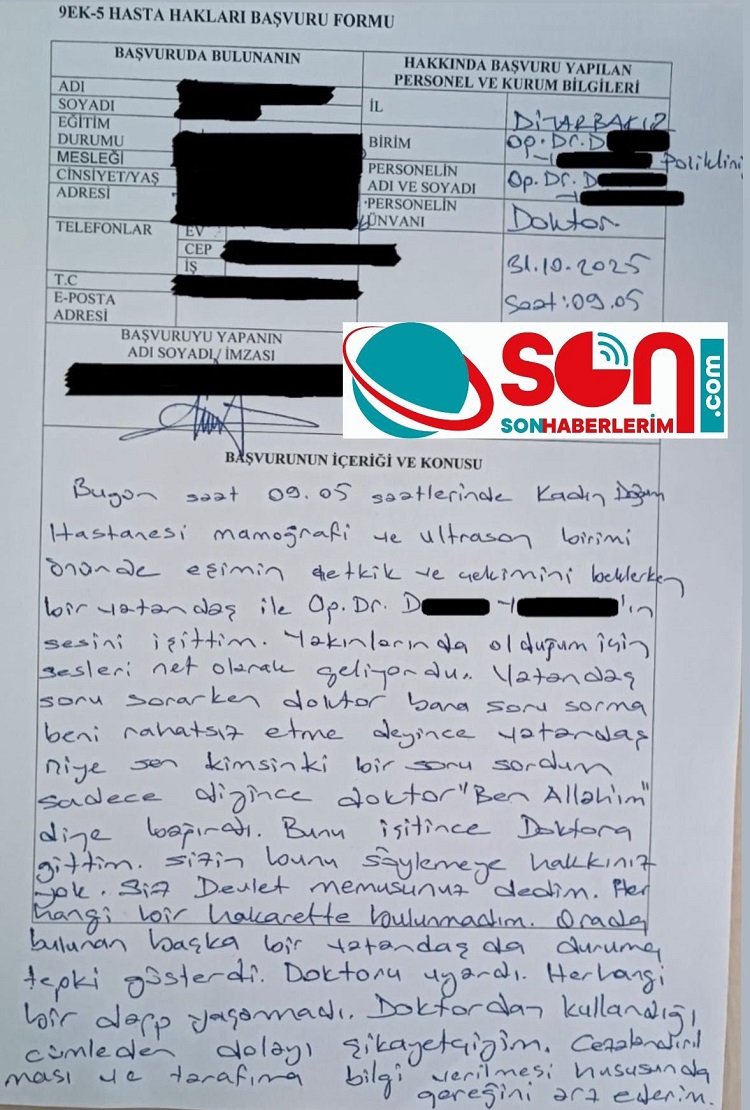 9EK-5 HASTA HAKLARI BAŞVURU FORMU
BAŞVURUDA BULUNANIN
HAKKINDA BAŞVURU YAPILAN
PERSONEL VE KURUM BİLGİLERİ
ADI
SOYADI
EĞİTİM
DURUMU
MESLEĞİ
CİNSİYET/YAŞ
ADRESİ
TELEFONLAR
EV
CEP
İŞ
T.C
E-POSTA
ADRESİ
İL
DİYARBAKIR
BİRİM
Op. Dr. D
Y
Poliklini
PERSONELİN
ADI VE SOYADI
Op. Dr. D
PERSONELİN
ÜNVANI
Doktor
31.10.2025
Saat:09.05
BAŞVURUYU YAPANIN
ADI SOYADI / İMZASI
SON
.com
SONHABERLERIM
BAŞVURUNUN İÇERİĞİ VE KONUSU
Bugün saat 09.05 saatlerinde Kadın Doğum
Hastanesi mamografi ve ultrason birimi
önünde eşimin tetkik ve çekimini beklerken
bir vatandaş ile Op. Dr. D Y 'ın
sesini işittim. Yakınlarında olduğum için
sesleri net olarak geliyordu. Vatandaş
soru sorarken doktor bana soru sorma
beni rahatsız etme deyince vatandaş
niye sen kimsinki bir soru sordum
sadece diyince doktor "Ben Allah'ım"
diye bağırdı. Bunu işitince Doktora
gittim. Sizin bunu söylemeye hakkınız
yok. Siz Devlet memusunuz dedim. Her
hangi bir hakarette bulunmadım. Orada
bulunan başka bir vatandaş da duruma
tepki gösterdi. Doktoru uyardı. Herhangi
bir darp yaşanmadı. Doktordan kullandığı
cümleden dolayı şikayetçiyim. Cezalandırıl
ması ve tarafıma bilgi verilmesi hususunda
gereğini arz ederim.